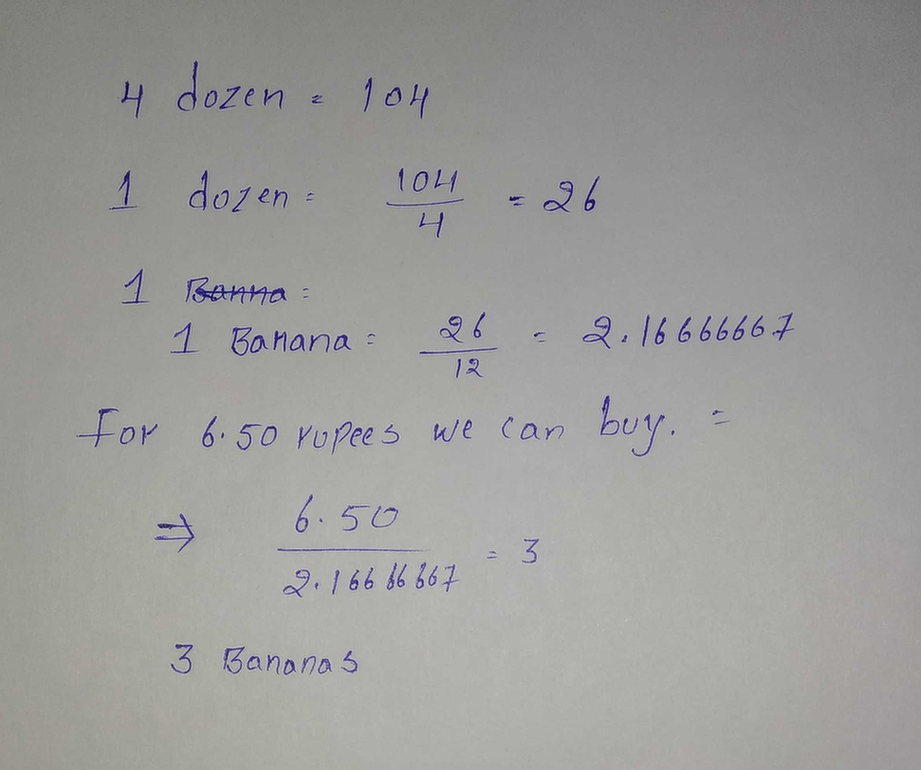 4 dozen = 104
1 dozen = 104/4 = 26
1 Banna =
1 Banana = 26/12 = 2.16666667
For 6.50 rupees we can buy. =
⇒ 6.50/2.16666667 = 3
3 Bananas